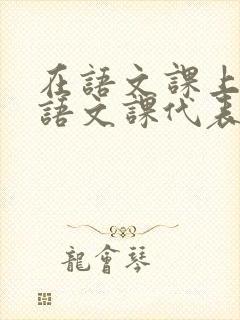 在語文課上
語文課代表
龍會琴